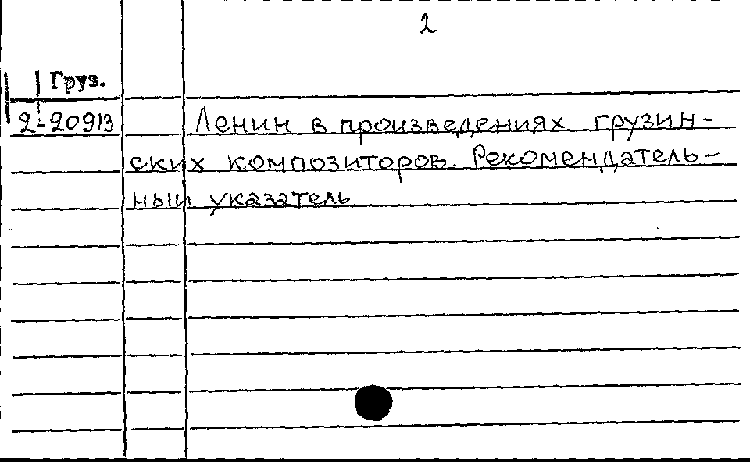 2
Груз.
2-20913
Ленин в произведениях грузин-
ских композиторов. Рекомендатель-
ный указатель